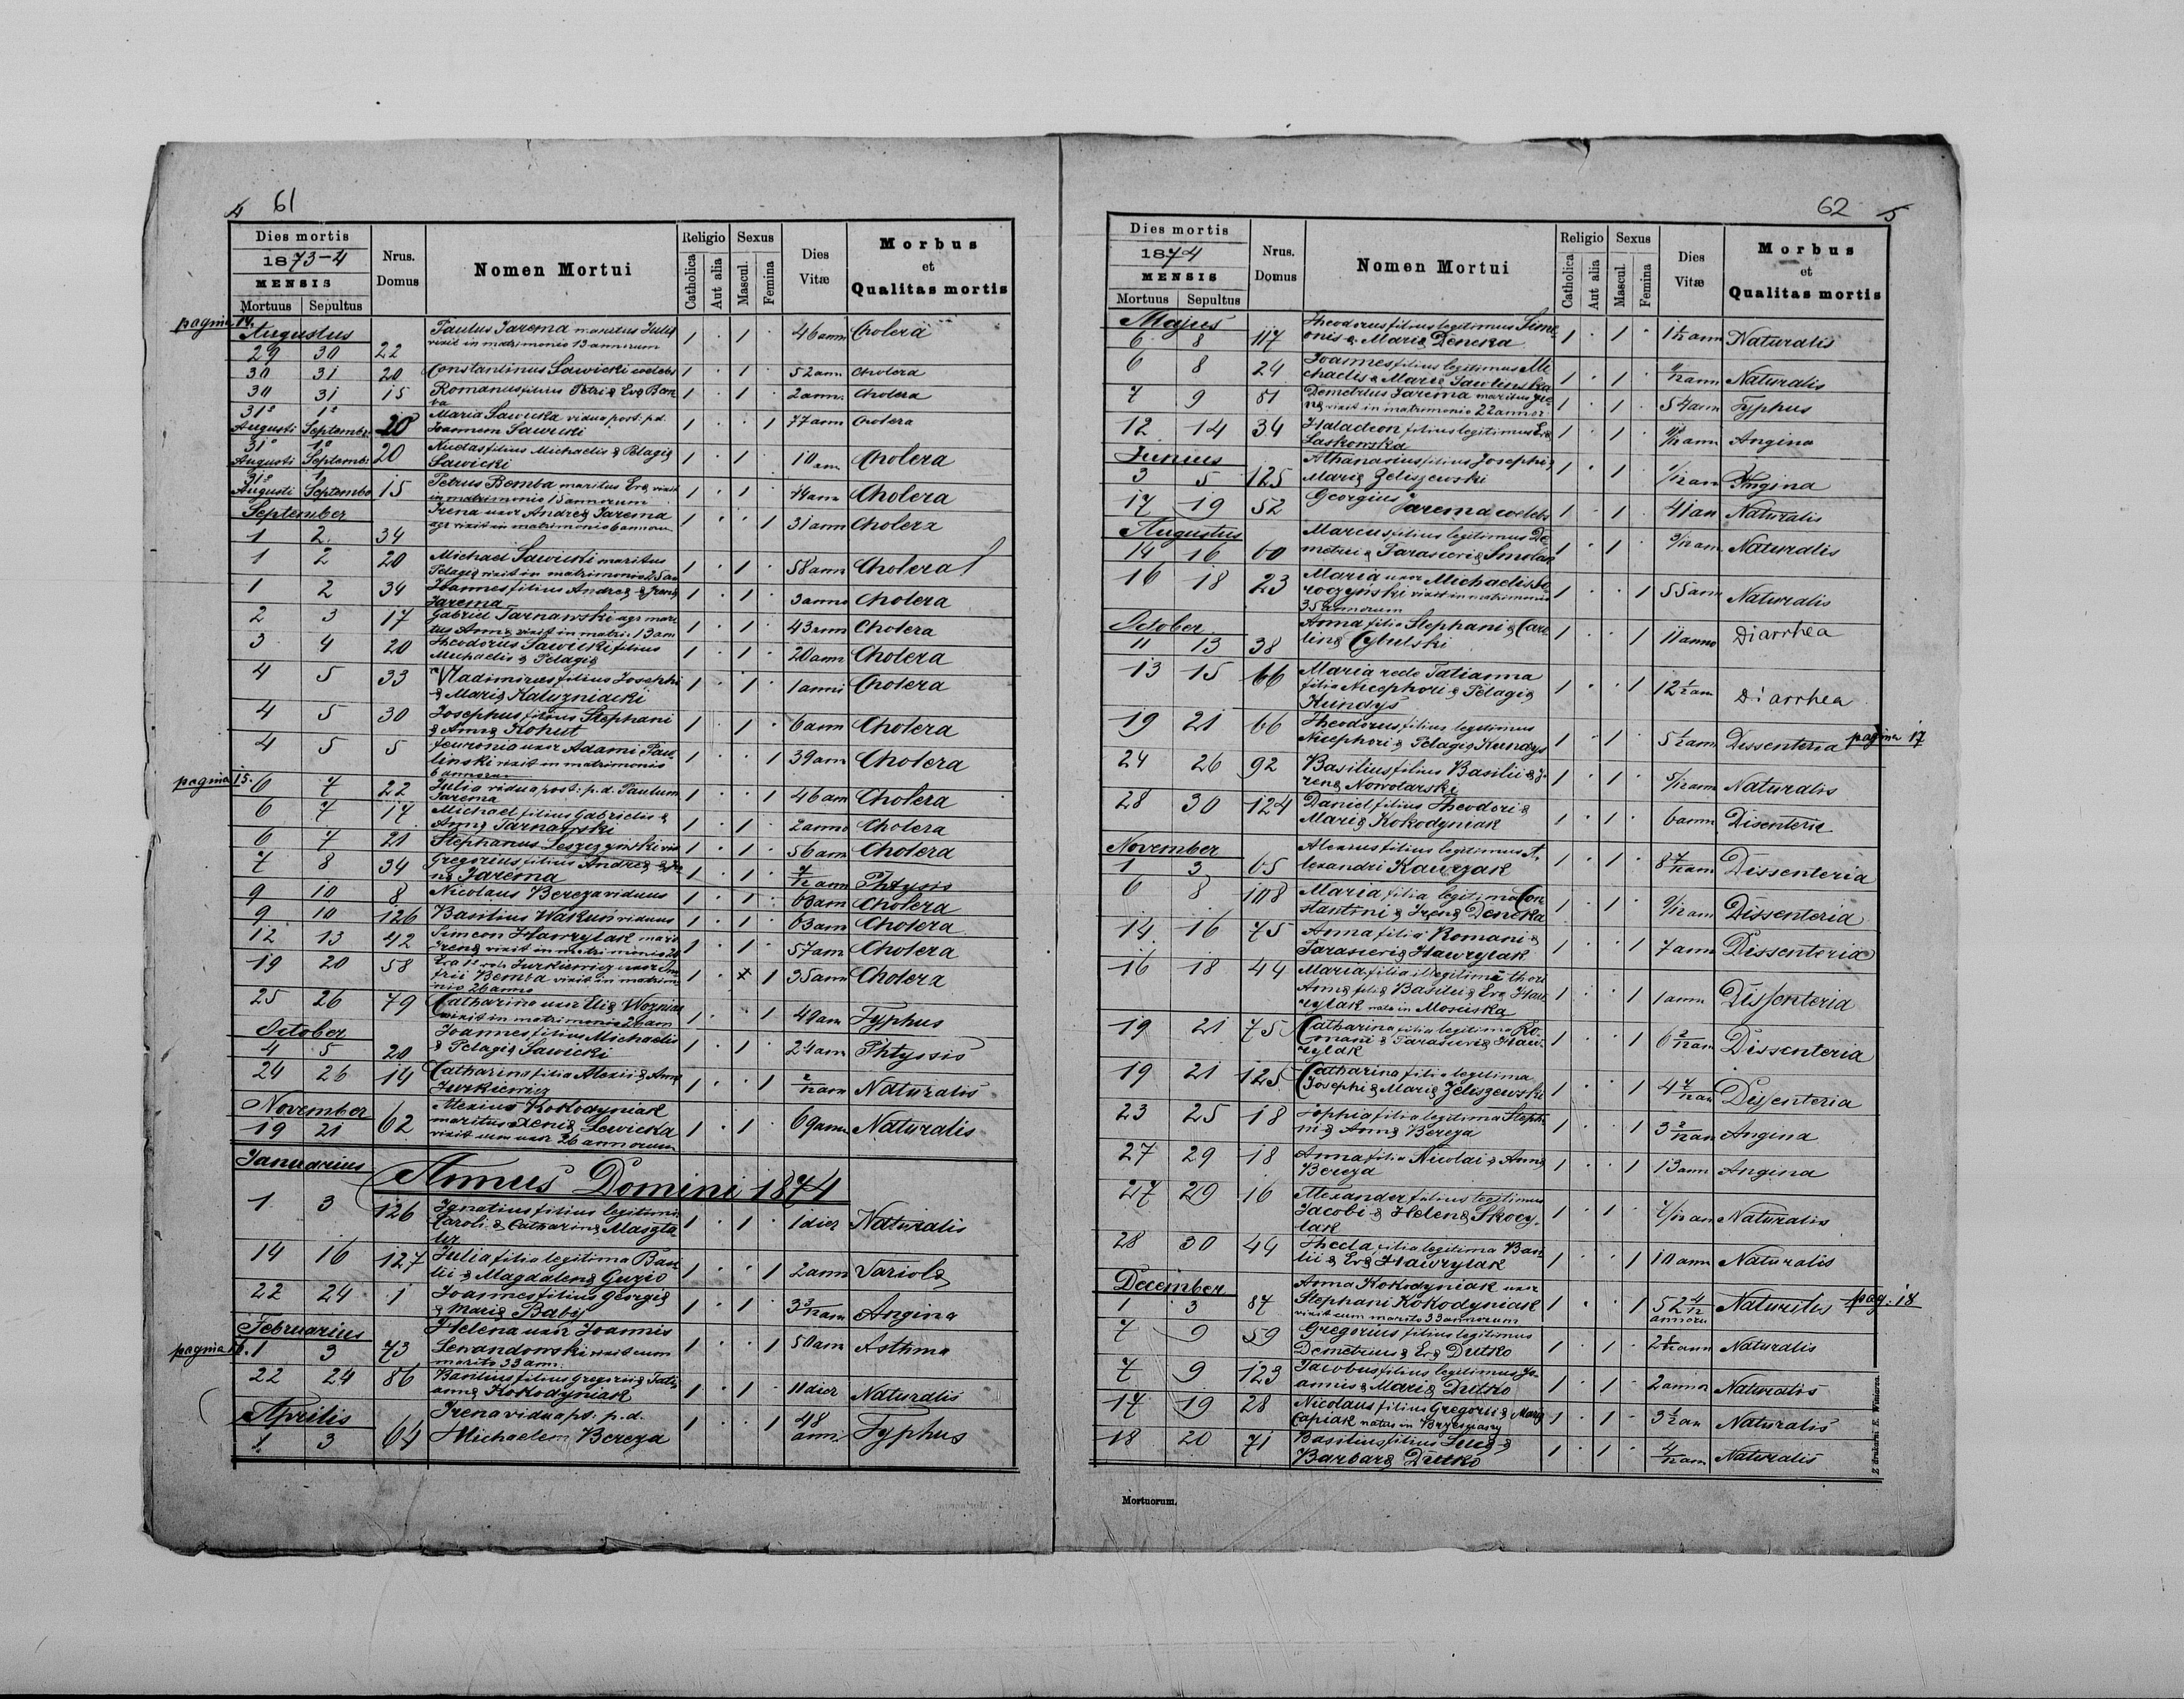 4 61
Dies mortis
1873-4
MENSIS
Mortuus Sepultus
Nrus. Domus
Nomen Mortui
Religio
Catholica Aut alia
Sexus
Mascul. Femina
Dies Vitæ
Morbus
et
Qualitas mortis
pagina 14.
Augustus
29 30 22 Paulus Jarema maritus Juliæ 1 · 1 · 46 ann Cholera
vixit in matrimonio 13 annorum
30 31 20 Constantinus Sawicki coelebs 1 · 1 · 52 ann Cholera
30 31 15 Romanus filius Petri & Evæ Bem 1 · 1 · 2 ann. Cholera
ba
31° 1° Maria Sawicka vidua post: p.d.
Augusti Septembr. 20 Joannem Sawicki 1 · · 1 77 ann Cholera
31° 1° filius Michaelis & Pelagiæ
Augusti Septemb. 20 Sawicki 1 · 1 · 10 ann Cholera
31° 1 Petrus Bemba maritus Evæ vixit
Augusti Septembr 15 in matrimonio 15 annorum 1 · 1 · 44 ann Cholera
September Irena uxor Andreæ Jarema 1 · · 1 31 ann Cholera
1 2. 34 agr vixit in matrimonio 6 annoru
1 2 20 Michael Sawicki maritus 1 · 1 · 58 ann Cholera
Pelagiæ vixit in matrimonio 25 an
1 2 34 Joannes filius Andreæ & Irenæ 1 · 1 · 3 anno Cholera
Jarema
2 3 17 Gabriel Tarnawski agr mari 1 · 1 · 43 ann Cholera
tus Annæ vixit in matri: 13 ann
3 4 20 Theodorus Sawicki filius 1 · 1 · 20 ann Cholera
Michaelis & Pelagiæ
4 5 33 Vladimirus filius Josephi 1 · 1 1 anni Cholera
& Mariæ Kaluzniacki
4 5 30 Josephus filius Stephani 1 · 1 · 6 ann Cholera
& Annæ Kohut
4 5 5 Fevronia uxor Adami Pau- 1 · · 1 39 ann Cholera
linski vixit in matrimonio
6 annorum
pagina 15. 6 7 22 Julia vidua post: p.d. Paulum 1 · · 1 46 am Cholera
Jarema
6 7 17 Michael filius Gabrielis & 1 · 1 · 2 anno Cholera
Annæ Tarnawski
6 7 21 Stephanus Leszczynski vid 1 · 1 · 56 ann Cholera
7 8 34 Gregorius filius Andreæ & Ire 1 · 1 · 7/12 ann Phtysis
næ Jarema
9 10 8 Nicolaus Bereza viduus 1 · 1 · 63 am Cholera
9 10 126 Basilius Wakun viduus 1 · 1 · 63 am Cholera
12 13 42 Simeon Hawrylak mari 1 · 1 · 57 am Cholera
Irenæ vixit in matrimonio 20
19 20 58 Eva Jurkiewicz uxor Dm 1 · x 1 35 ann Cholera
trii Bemba vixit in matrim
nio 26 anno
25 26 79 Catharina uxor Eliæ Wozniak 1 · · 1 49 am Typhus
vixit in matrimonio 26 am
October Joannes filius Michaelis
4 5 20 & Pelagiæ Sawicki 1 · 1 · 24 am Phtyssis
24 26 14 Catharina filia Alexii & Annæ 1 · · 1 2/12 ann Naturalis
Jurkiewicz
November Alexius Kokodyniak
19 21 62 maritus Xeniæ Lewicka 1 · 1 · 69 ann Naturalis
vixit cum uxor 26 annorum
Januarius Annus Domini 1874
1 3 126 Ignatius filius legitimi 1 · 1 · 1 dier Naturalis
Caroli & Catharinæ Maszta
ler
14 16 127 Julia filia legitima Basi 1 · · 1 2 ann Variolæ
lii & Magdalenæ Guzio
22 24 1 Joannes filius Georgii 1 · 1 · 3 3/12 am Angina
& Mariæ Baby
Februarius Helena uxor Joannis
pagina 16. 1 3 73 Lewandowski vixit cum 1 · · 1 50 ann Asthma
marito 33 ann.
22 24 86 Basilius filius Gregorii & Tati- 1 · 1 · 11 dier Naturalis
annæ Kokodyniak
Aprilis Irena vidua ps: p.d.
1 3 64 Michaelem Bereza 1 · · 1 48 ann. Typhus
62 5
Dies mortis
1874
MENSIS
Mortuus Sepultus
Nrus. Domus
Nomen Mortui
Religio
Catholica Aut alia
Sexus
Mascul. Femina
Dies Vitæ
Morbus
et
Qualitas mortis
Majus Theodorus filius legitimus Sime-
6 8 117 onis & Mariæ Deneka 1 · 1 · ann Naturalis
6 8 24 Joannes filius legitimus Mi 1 · 1 · ann Naturalis
chaelis & Mariæ Pawlinska
7 9 51 Demetrius Jarema maritus Ire 1 · 1 · 54 ann Typhus
næ vixit in matrimonio 22 annor
12 14 34 filius legitimus Evæ 1 · 1 · ann Angina
Laskowska
Junius Athanasius filius Josephi &
3 5 125 Mariæ Zeliszewski 1 · 1 1/12 am Angina
17 19 52 Georgius Jarema coelebs 1 · 1 · 41 an Naturalis
Augustus Marcus filius legitimus De-
14 16 60 metrii & Parascevæ Smolak 1 · 1 · 9/12 am Naturalis
16 18 23 Maria uxor Michaelis 1 · · 1 55 ann Naturalis
vixit in matrimonio
35 annorum
October Anna filia Stephani & Caro
11 13 38 linæ Cybulski 1 · · 1 11 anno Diarrhea
13 15 66 Maria recte Tatianna 1 · · 1 12 1/2 am Diarrhea
filia Nicephori & Pelagiæ
Kundys
19 21 66 Theodorus filius legitimus 1 · 1 · 5 1/2 ann Dissenteria pagina 17
Nicephori & Pelagiæ Kundys
24 26 92 Basilius filius Basilii & I- 1 · 1 · 5/12 ann Naturalis
renæ Nowolarski
28 30 124 Daniel filius Theodori & 1 · 1 · 6 ann Disenteria
Mariæ Kokodyniak
November Alexius filius legitimus A-
1 3 65 lexandri Kawczak 1 · 1 · 8 7/12 am Dissenteria
6 8 108 Maria filia legitima Con 1 · · 1 9/12 am Dissenteria
stantini & Irenæ Deneka
14 16 75 Anna filia Romani & 1 · · 1 7 ann Dissenteria
Parascevæ Hawrylak
16 18 44 Maria filia illegitimæ thori 1 · · 1 1 ann Dissenteria
Annæ filiæ Basilii & Evæ Haw
rylak nata in Mosciska
19 21 75 Catharina filia legitima Ro- 1 · · 1 6 2/12 am Dissenteria
mani & Parascevæ Haw-
rylak
19 21 125 Catharina filia legitima 1 · · 1 4 7/12 an Dissenteria
Josephi & Mariæ Zeliszewski
23 25 18 Sophia filia legitima Steph- 1 · · 1 3 2/12 an Angina
ni & Annæ Bereza
27 29 18 Anna filia Nicolai & Annæ 1 · · 1 13 ann Angina
Bereza
27 29 16 Alexander filius legitimus 1 · 1 · 7/12 an Naturalis
Jacobi & Helenæ Skocy-
lak
28 30 44 Thecla filia legitima Basi- 1 · · 1 10 ann Naturalis
lii & Evæ Hawrylak
December Anna Kokodyniak uxor
1 3 87 Stephani Kokodyniak 1 · · 1 52 4/12 Naturales pag: 18
vixit cum marito 33 annorum annoru
7 9 59 Gregorius filius legitimus 1 · 1 · ann Naturalis
Demetrius & Evæ Dutko
7 9 123 Jacobus filius legitimus Jo- 1 · 1 · 2 anno Naturalis
annis & Mariæ Dutko
17 19 28 Nicolaus filius Gregorii & Mariæ 1 · 1 · 3 1/2 an Naturalis
Capiak natus in
18 20 71 Basilius filius Lucæ & 1 · 1 · 4/12 am Naturalis
Barbaræ Dutko
Mortuorum.
Z drukarni E. Winiarza.